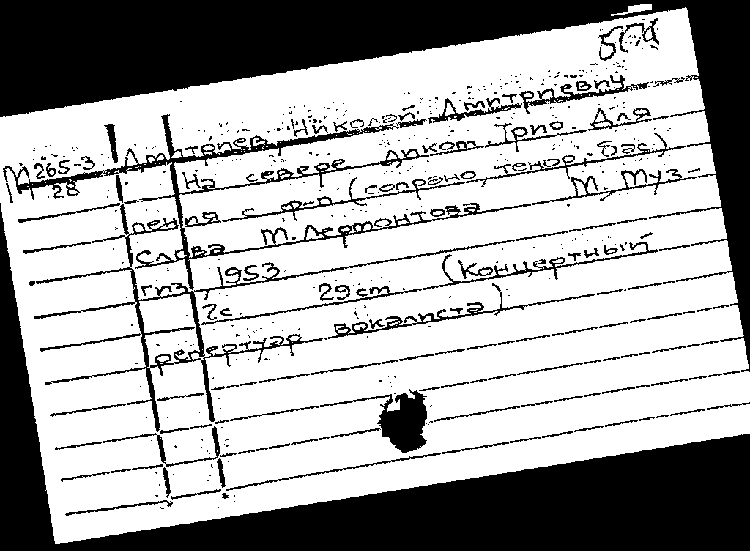 М 265-3
28
Дмитриев Николай Дмитриевич
На севере диком. Трио. Для
пения с ф-п (сопрано, тенор, бас)
Слова М. Лермонтова М., Муз-
гиз, 1953
7с. 29cm (Концертный
репертуар вокалиста).